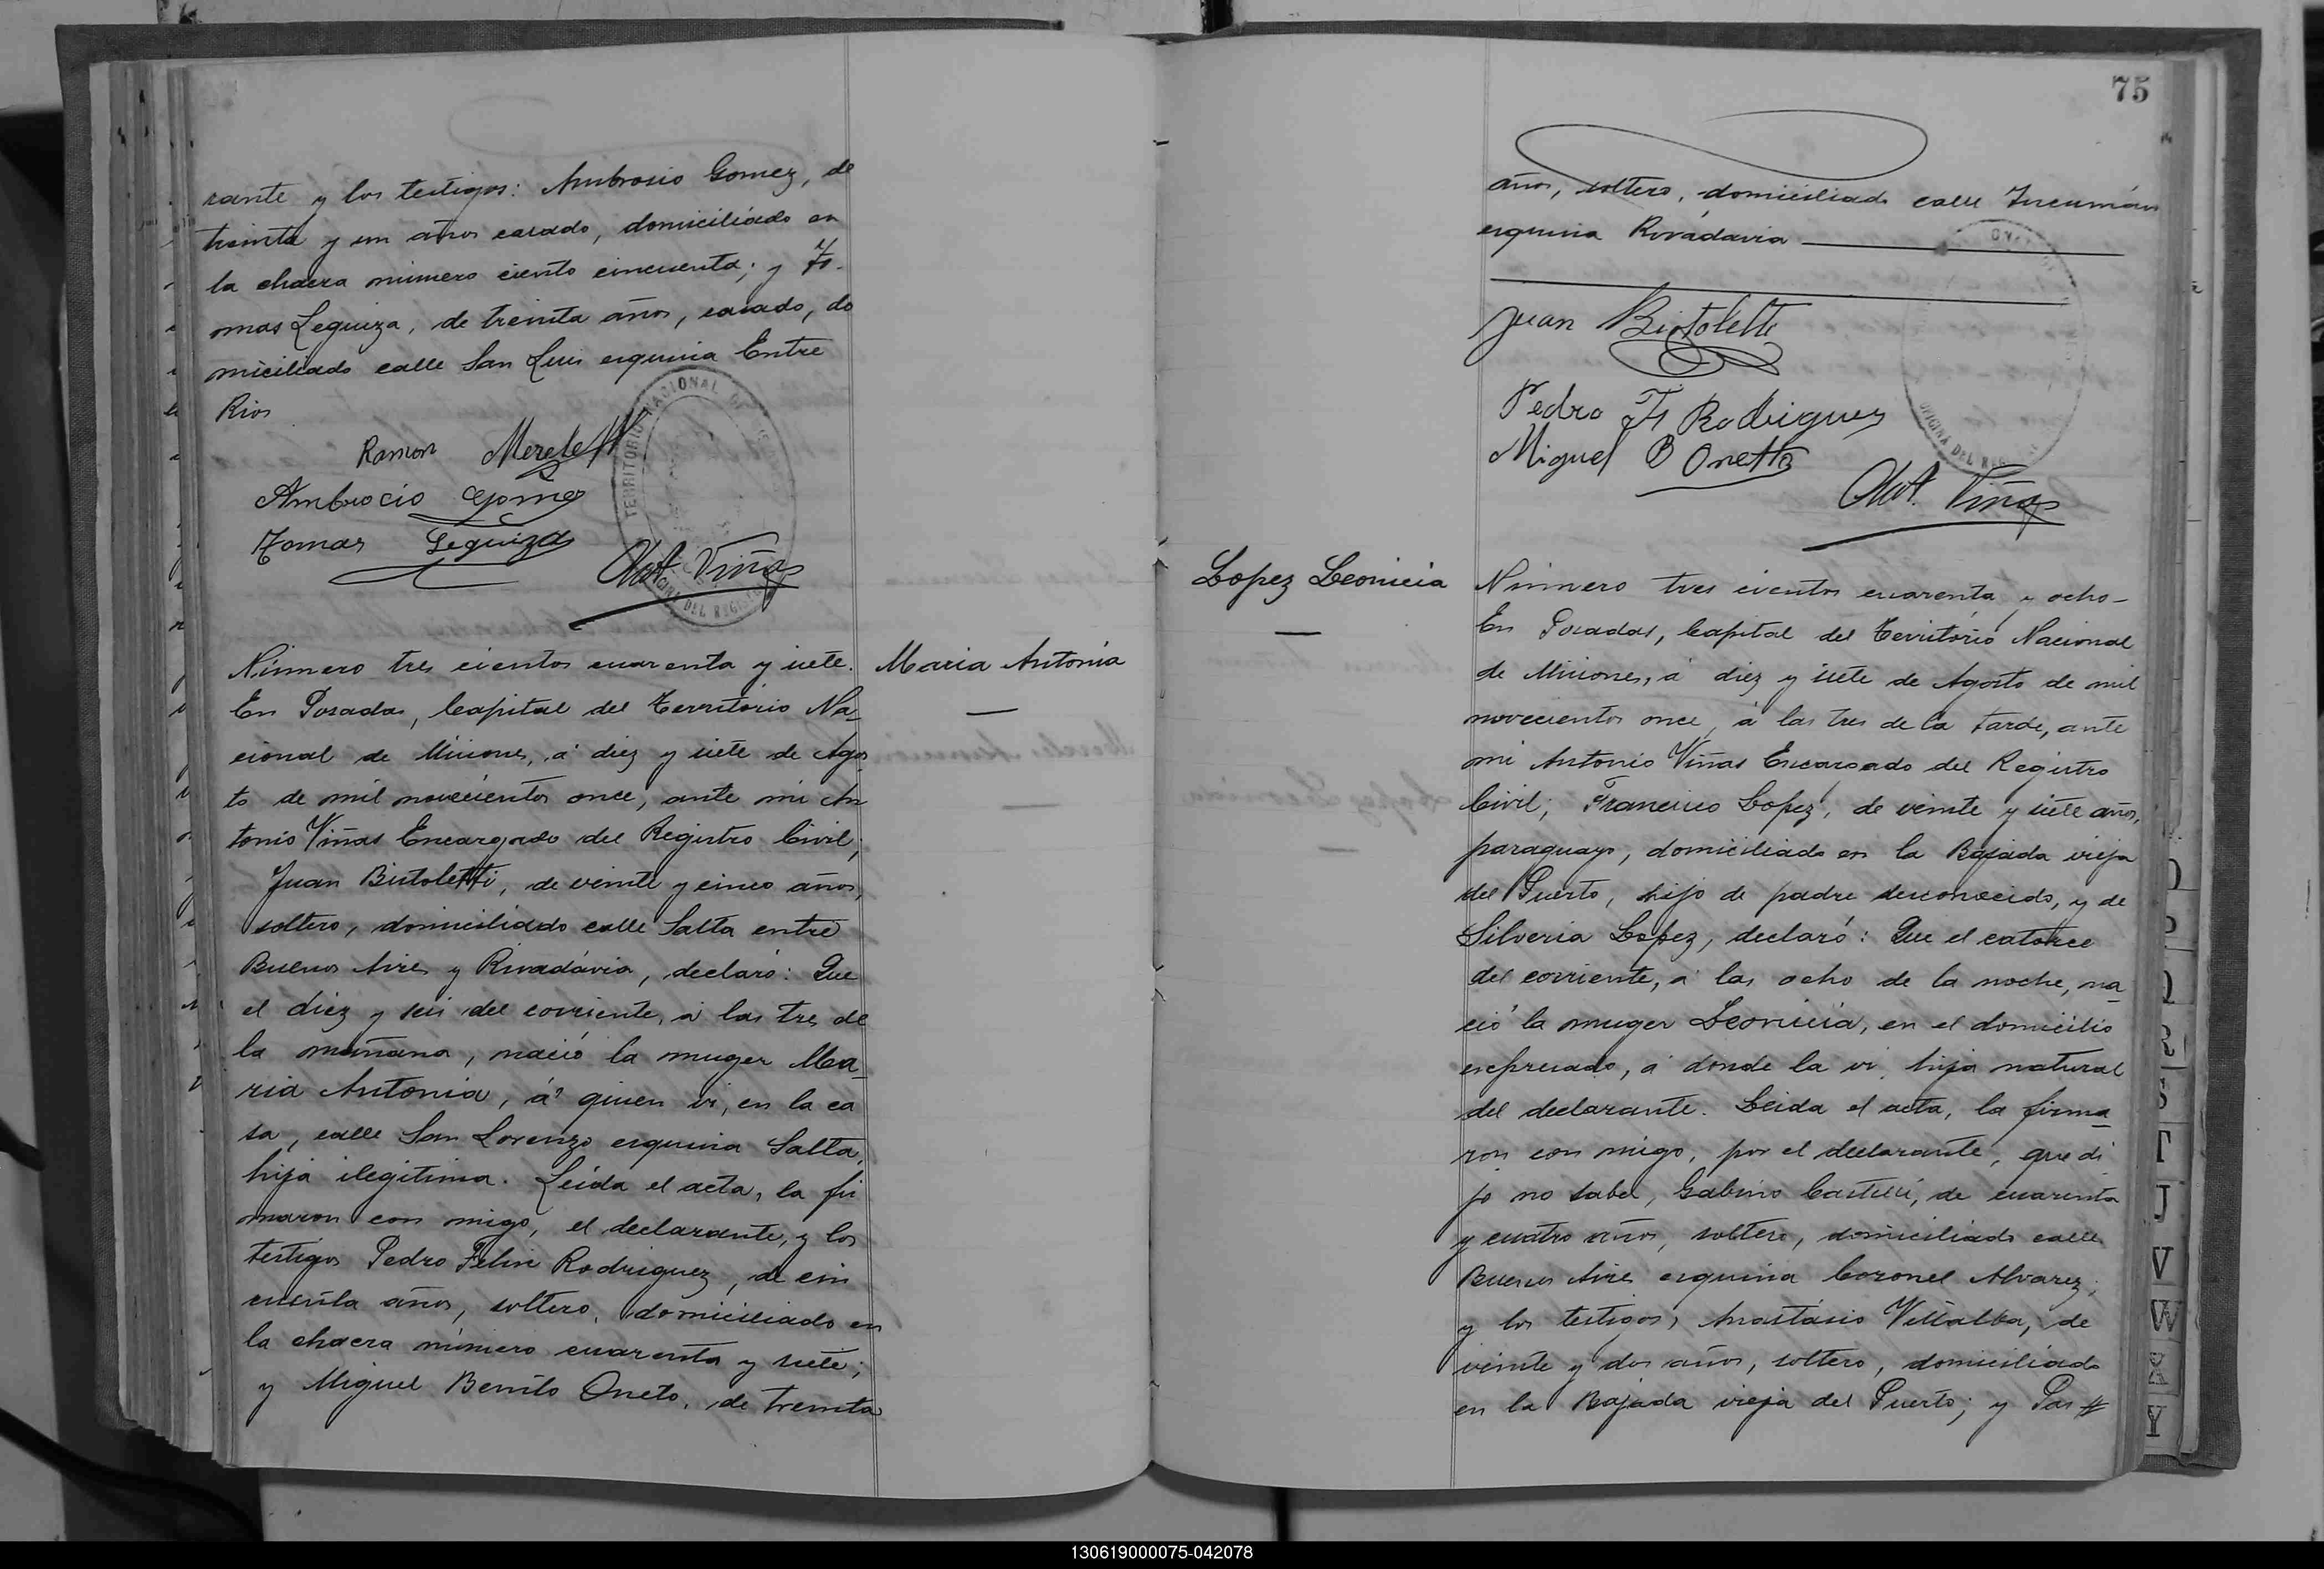 rante y los testigos: Ambrosio Gomez, de
treinta y un años casado, domiciliado en
la chacra número ciento cincuenta; y To-
omas Leguiza, de treinta años, casado, do
miciliado calle San Luis esquina Entre
Rios
Ramon Merele
Ambrocio Gomez
Tomas Leguiza
TERRITORIO NACIONAL DE
DEL REGIS
Ant. Viñas
Número tres cientos cuarenta y siete.
Maria Antonia
En Posadas, Capital del Territorio Na-
cional de Misiones, á diez y siete de Agos
to de mil novecientos once, ante mi An
tonio Viñas Encargado del Registro Civil;
Juan Bistoletti, de veinte y cinco años,
soltero, domiciliado calle Salta entre
Buenos Aires y Rivadávia, declaró: Que
el diez y seis del corriente, á las tres de
la mañana, nació la muger Ma-
ria Antonia, á quien vi, en la ca
sa, calle San Lorenzo esquina Salta,
hija ilegitima. Leida el acta, la fir
maron con migo, el declarante, y los
testigos Pedro Felix Rodriguez, de cin
cuenta años, soltero, domiciliado en
la chacra número cuarenta y siete;
y Miguel Benito Oneto, de treinta
75
años, soltero, domiciliado calle Tucumán
esquina Rivádavia
Juan Bistoletti
Pedro F Rodriguez
Miguel B Onetto
OFICINA DEL REG
Ant. Viñas
Lopez Leonicia
Número tres cientos cuarenta y ocho-
En Posadas, Capital del Territorio Nacional
de Misiones, á diez y siete de Agosto de mil
novecientos once, á las tres de la tarde, ante
mi Antonio Viñas Encargado del Registro
Civil; Francisco Lopez, de veinte y siete años,
paraguayo, domiciliado en la Bajada vieja
del Puerto, hijo de padre desconocido, y de
Silveria Lopez, declaró: Que el catorce
del corriente, á las ocho de la noche, na-
ció la muger Leonicia, en el domicilio
expresado, á donde la vi, hija natural
del declarante. Leida el acta, la firma-
ron con migo, por el declarante, que di
jo no saber, Gabino de cuarenta
y cuatro años, soltero, domiciliado calle
Buenos Aires esquina Coronel Alvarez;
y los testigos, Anastásio Villalba, de
veinte y dos años, soltero, domiciliado
en la Bajada vieja del Puerto; y Pas
Q
R
S
T
J
V
W
X
Y
130619000075-042078